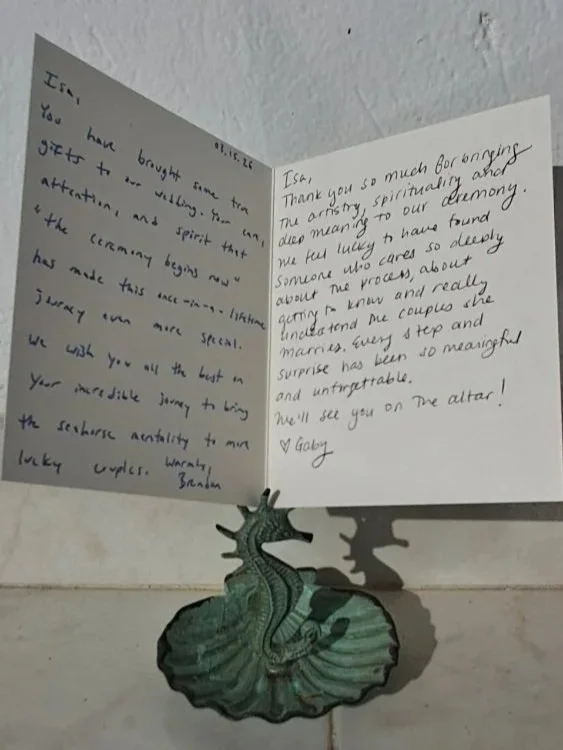 Isa,
03.15.26
You have brought some true
gifts to our wedding. Your care,
attention, and spirit that
"the ceremony begins now"
has made this once-in-a-lifetime
journey even more special.
We wish you all the best on
your incredible journey to bring
the seahorse mentality to more
lucky couples. Warmly,
Brendan
Isa,
Thank you so much for bringing
the artistry, spirituality and
deep meaning to our ceremony.
We feel lucky to have found
someone who cares so deeply
about the process, about
getting to know and really
understand the couples she
marries. Every step and
surprise has been so meaningful
and unforgettable.
We'll see you on the altar!
♡ Gaby